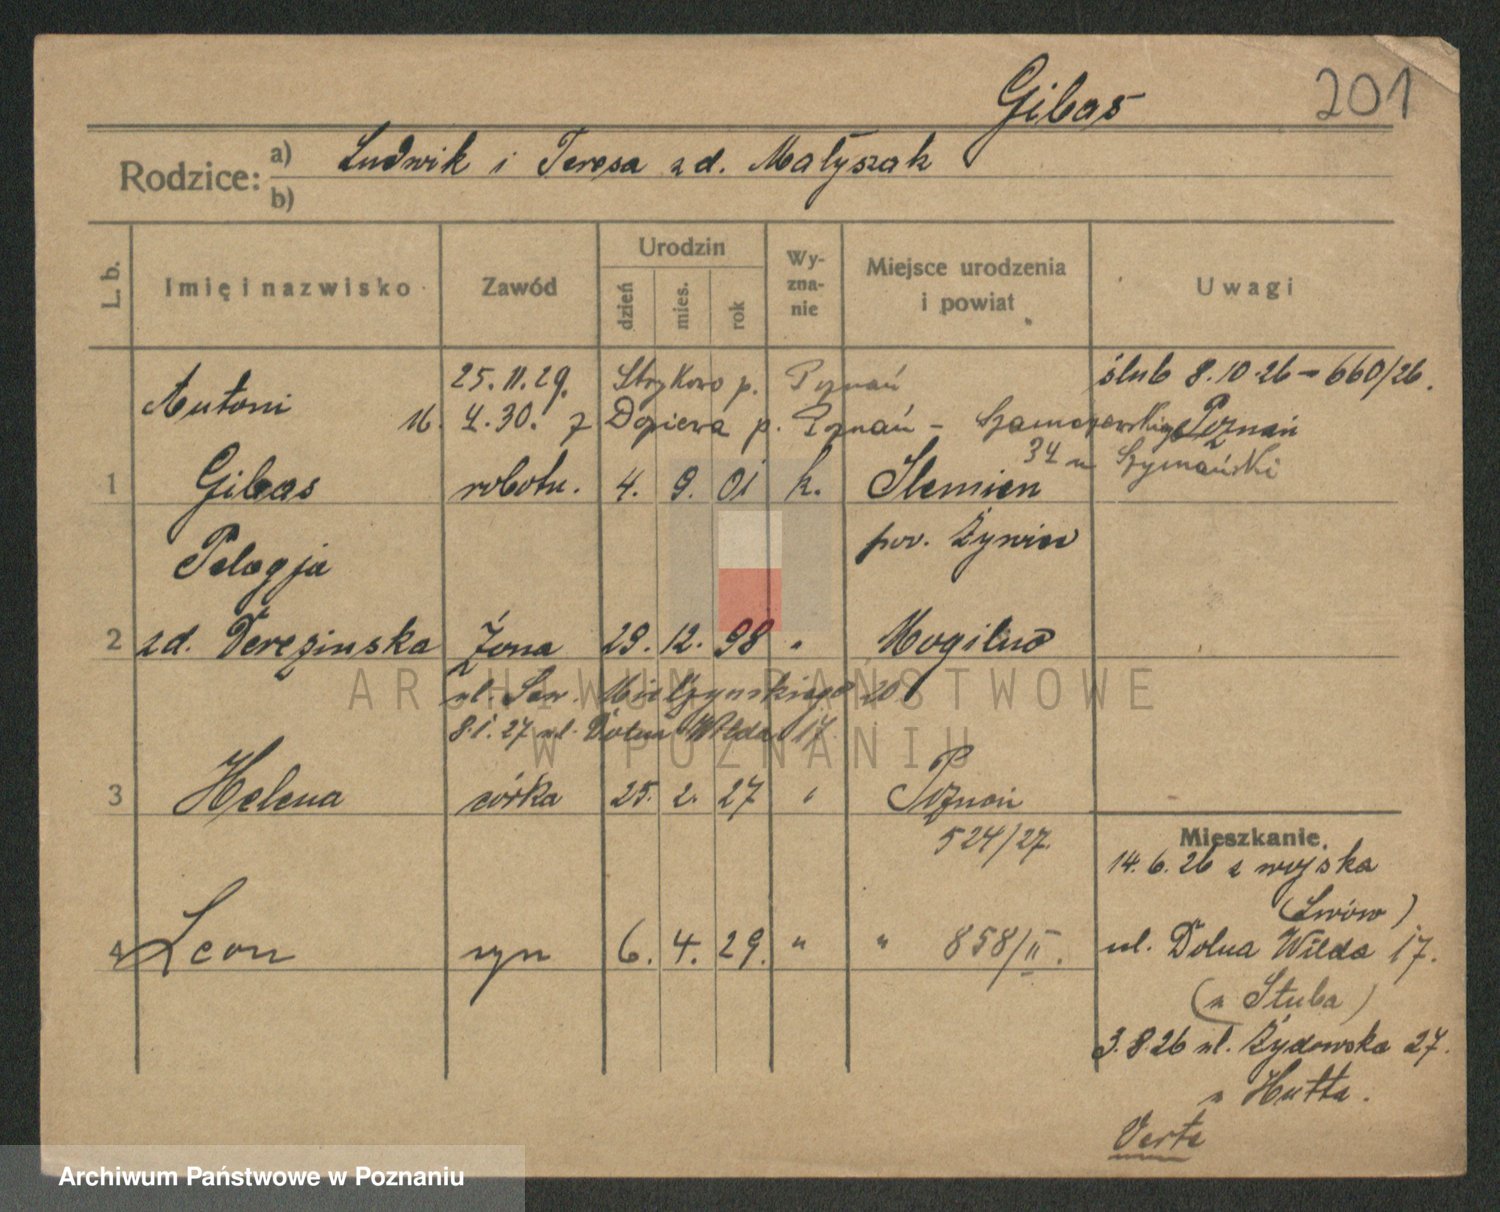 Gibas 201
Rodzice: a) Ludwik i Teresa zd. Małyszak
b)
L. b. Imię i nazwisko Zawód Urodzin dzień mies. rok Wy-zna-nie Miejsce urodzenia i powiat Uwagi
25.11.29. Strykowo p. Poznań ślub 8.10.26 - 660/26.
Antoni 4.30. z Dopiewa p. Poznań - Szamarzewskiego Poznań
34 u Szymański
1 Gibas robotn. 4. 9. 01 k. Ślemień
pow. Żywiec
Pelagja
2 zd. Derezinska żona 29. 12. 98 " Mogilno
ul. Sew. Mielżynskiego 20
8.1.27 ul. Dolna Wilda 17
3 Helena córka 25. 2. 27 " Poznań
524/27.
4 Leon syn 6. 4. 29. " " 858/II.
Mieszkanie.
14.6.26 z wojska
(Lwów)
ul. Dolna Wilda 17.
(u Stuba)
3.8.26 ul. Żydowska 27.
u Hutta.
Verte
ARCHIWUM PAŃSTWOWE
W POZNANIU
Archiwum Państwowe w Poznaniu